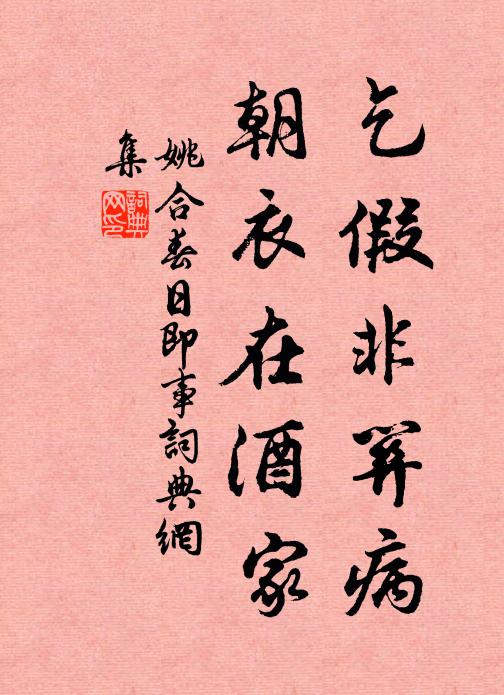 乞假非關病
朝衣在酒家
姚合春日即事詞典網
集
詞典
网印